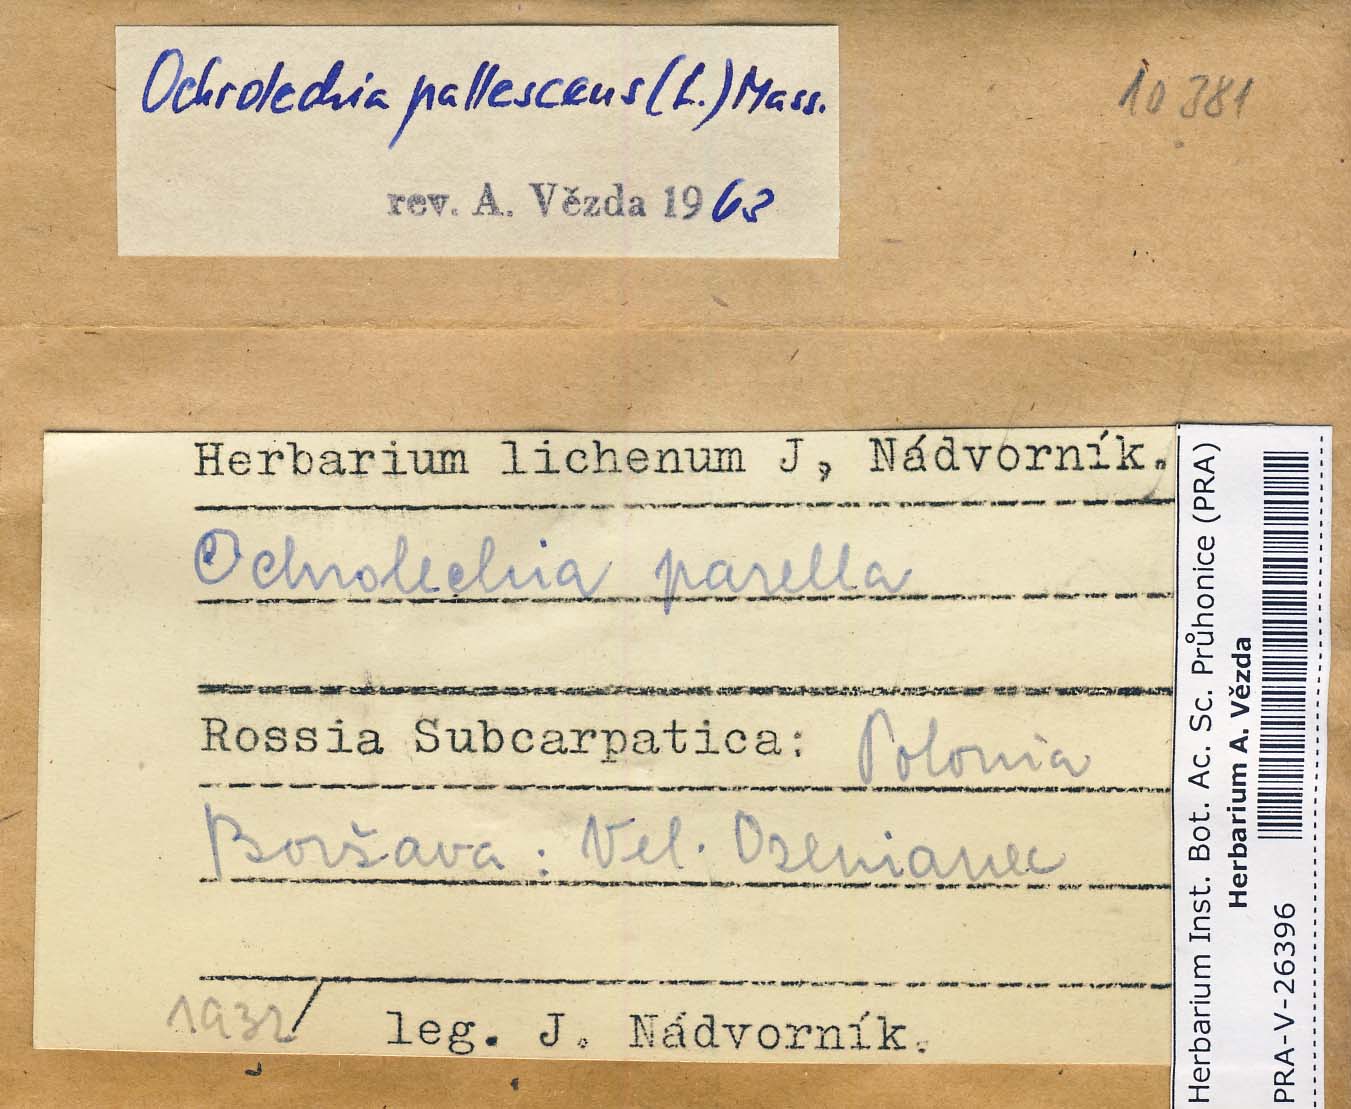 Ochrolechia pallescens (L.) Mass.
rev. A. Vězda 1963
10 381
Herbarium lichenum J, Nádvorník.
Ochrolechia parella
Rossia Subcarpatica: Polonia
Boršava: Vel.
1932/ leg. J. Nádvorník.
Herbarium Inst. Bot. Ac. Sc. Průhonice (PRA)
Herbarium A. Vězda
PRA-V-26396